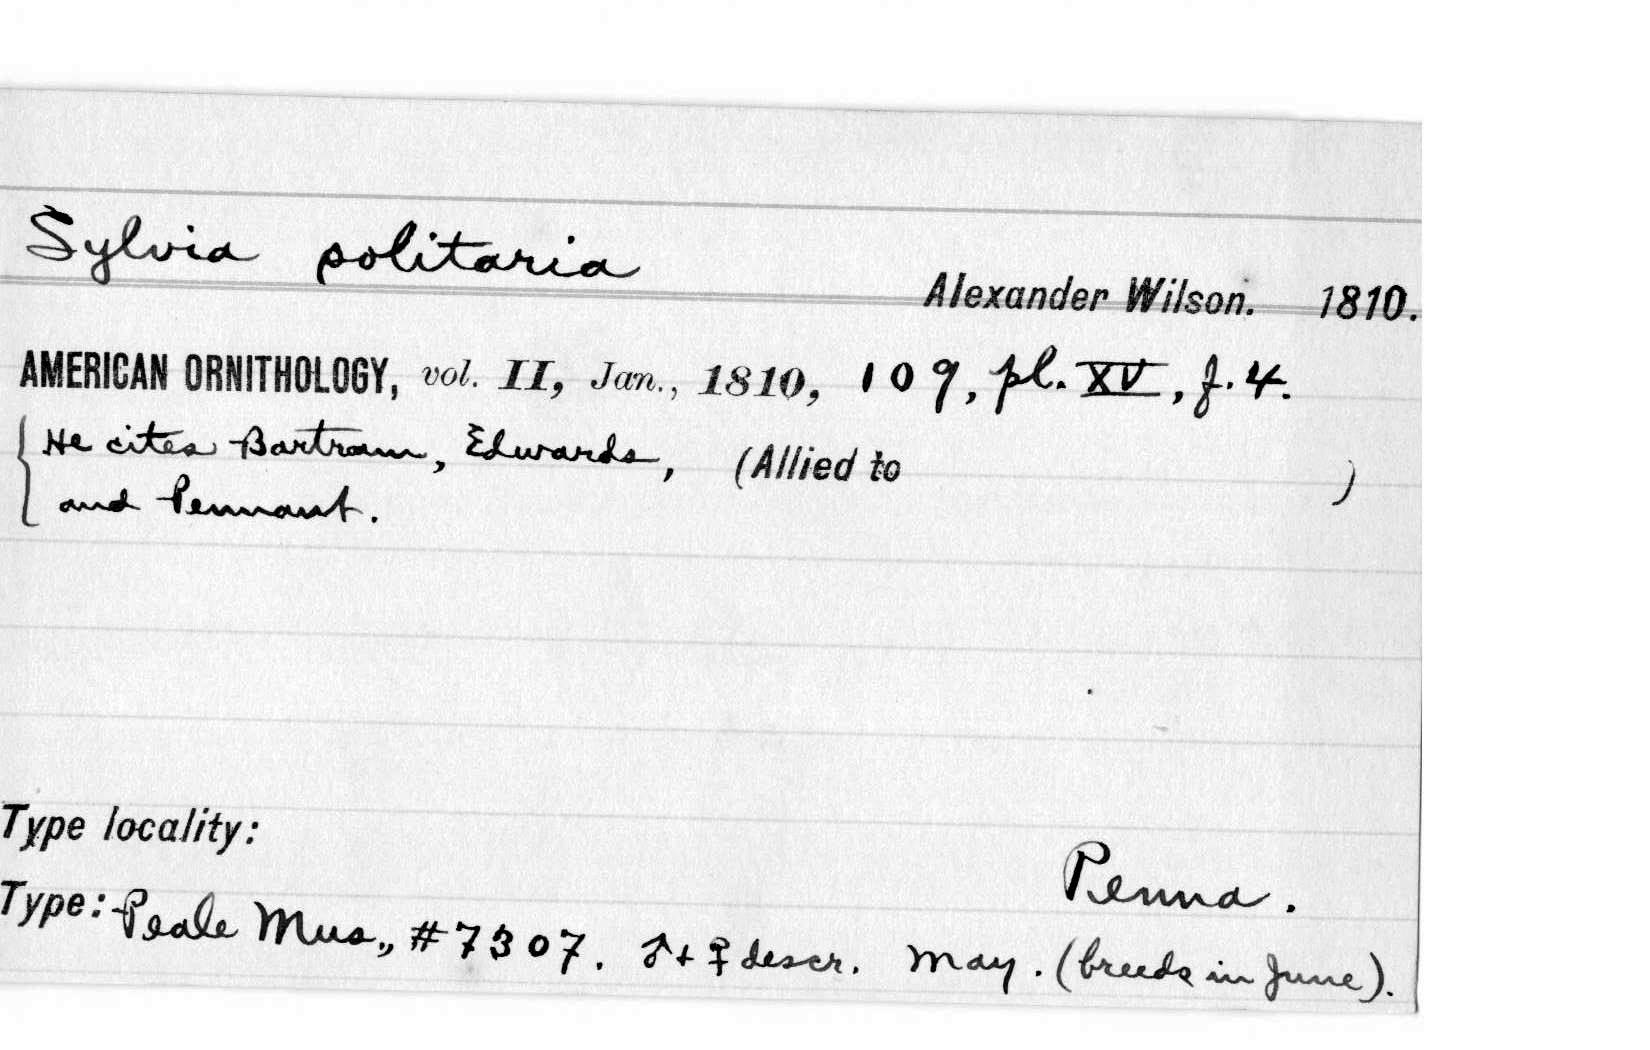 Sylvia solitaria
Alexander Wilson. 1810.
AMERICAN ORNITHOLOGY, vol. II, Jan., 1810, 109, pl. XV, f. 4.
{ He cites Bartram, Edwards, (Allied to )
and Pennant.
Type locality:
Penna.
Type: Peale Mus., #7307. ♂ + ♀ descr. May. (breeds in June).